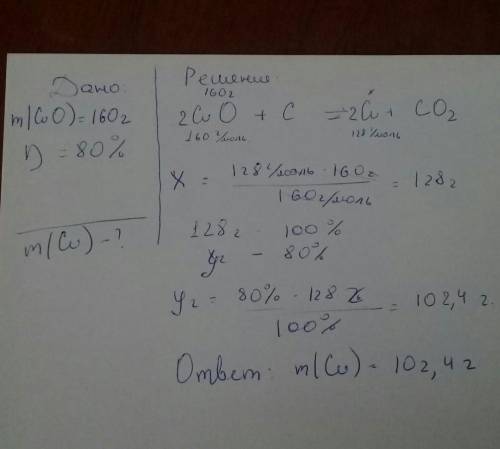 Дано:
m(CuO)=160г
η = 80%
m(Cu)-?
Решение:
160г x
2CuO + C = 2Cu + CO2
160г/моль 128г/моль
X = 128г/моль · 160г / 160г/моль = 128г
128г - 100%
yг - 80%
yг = 80% · 128г / 100% = 102,4 г.
Ответ: m(Cu) = 102,4 г